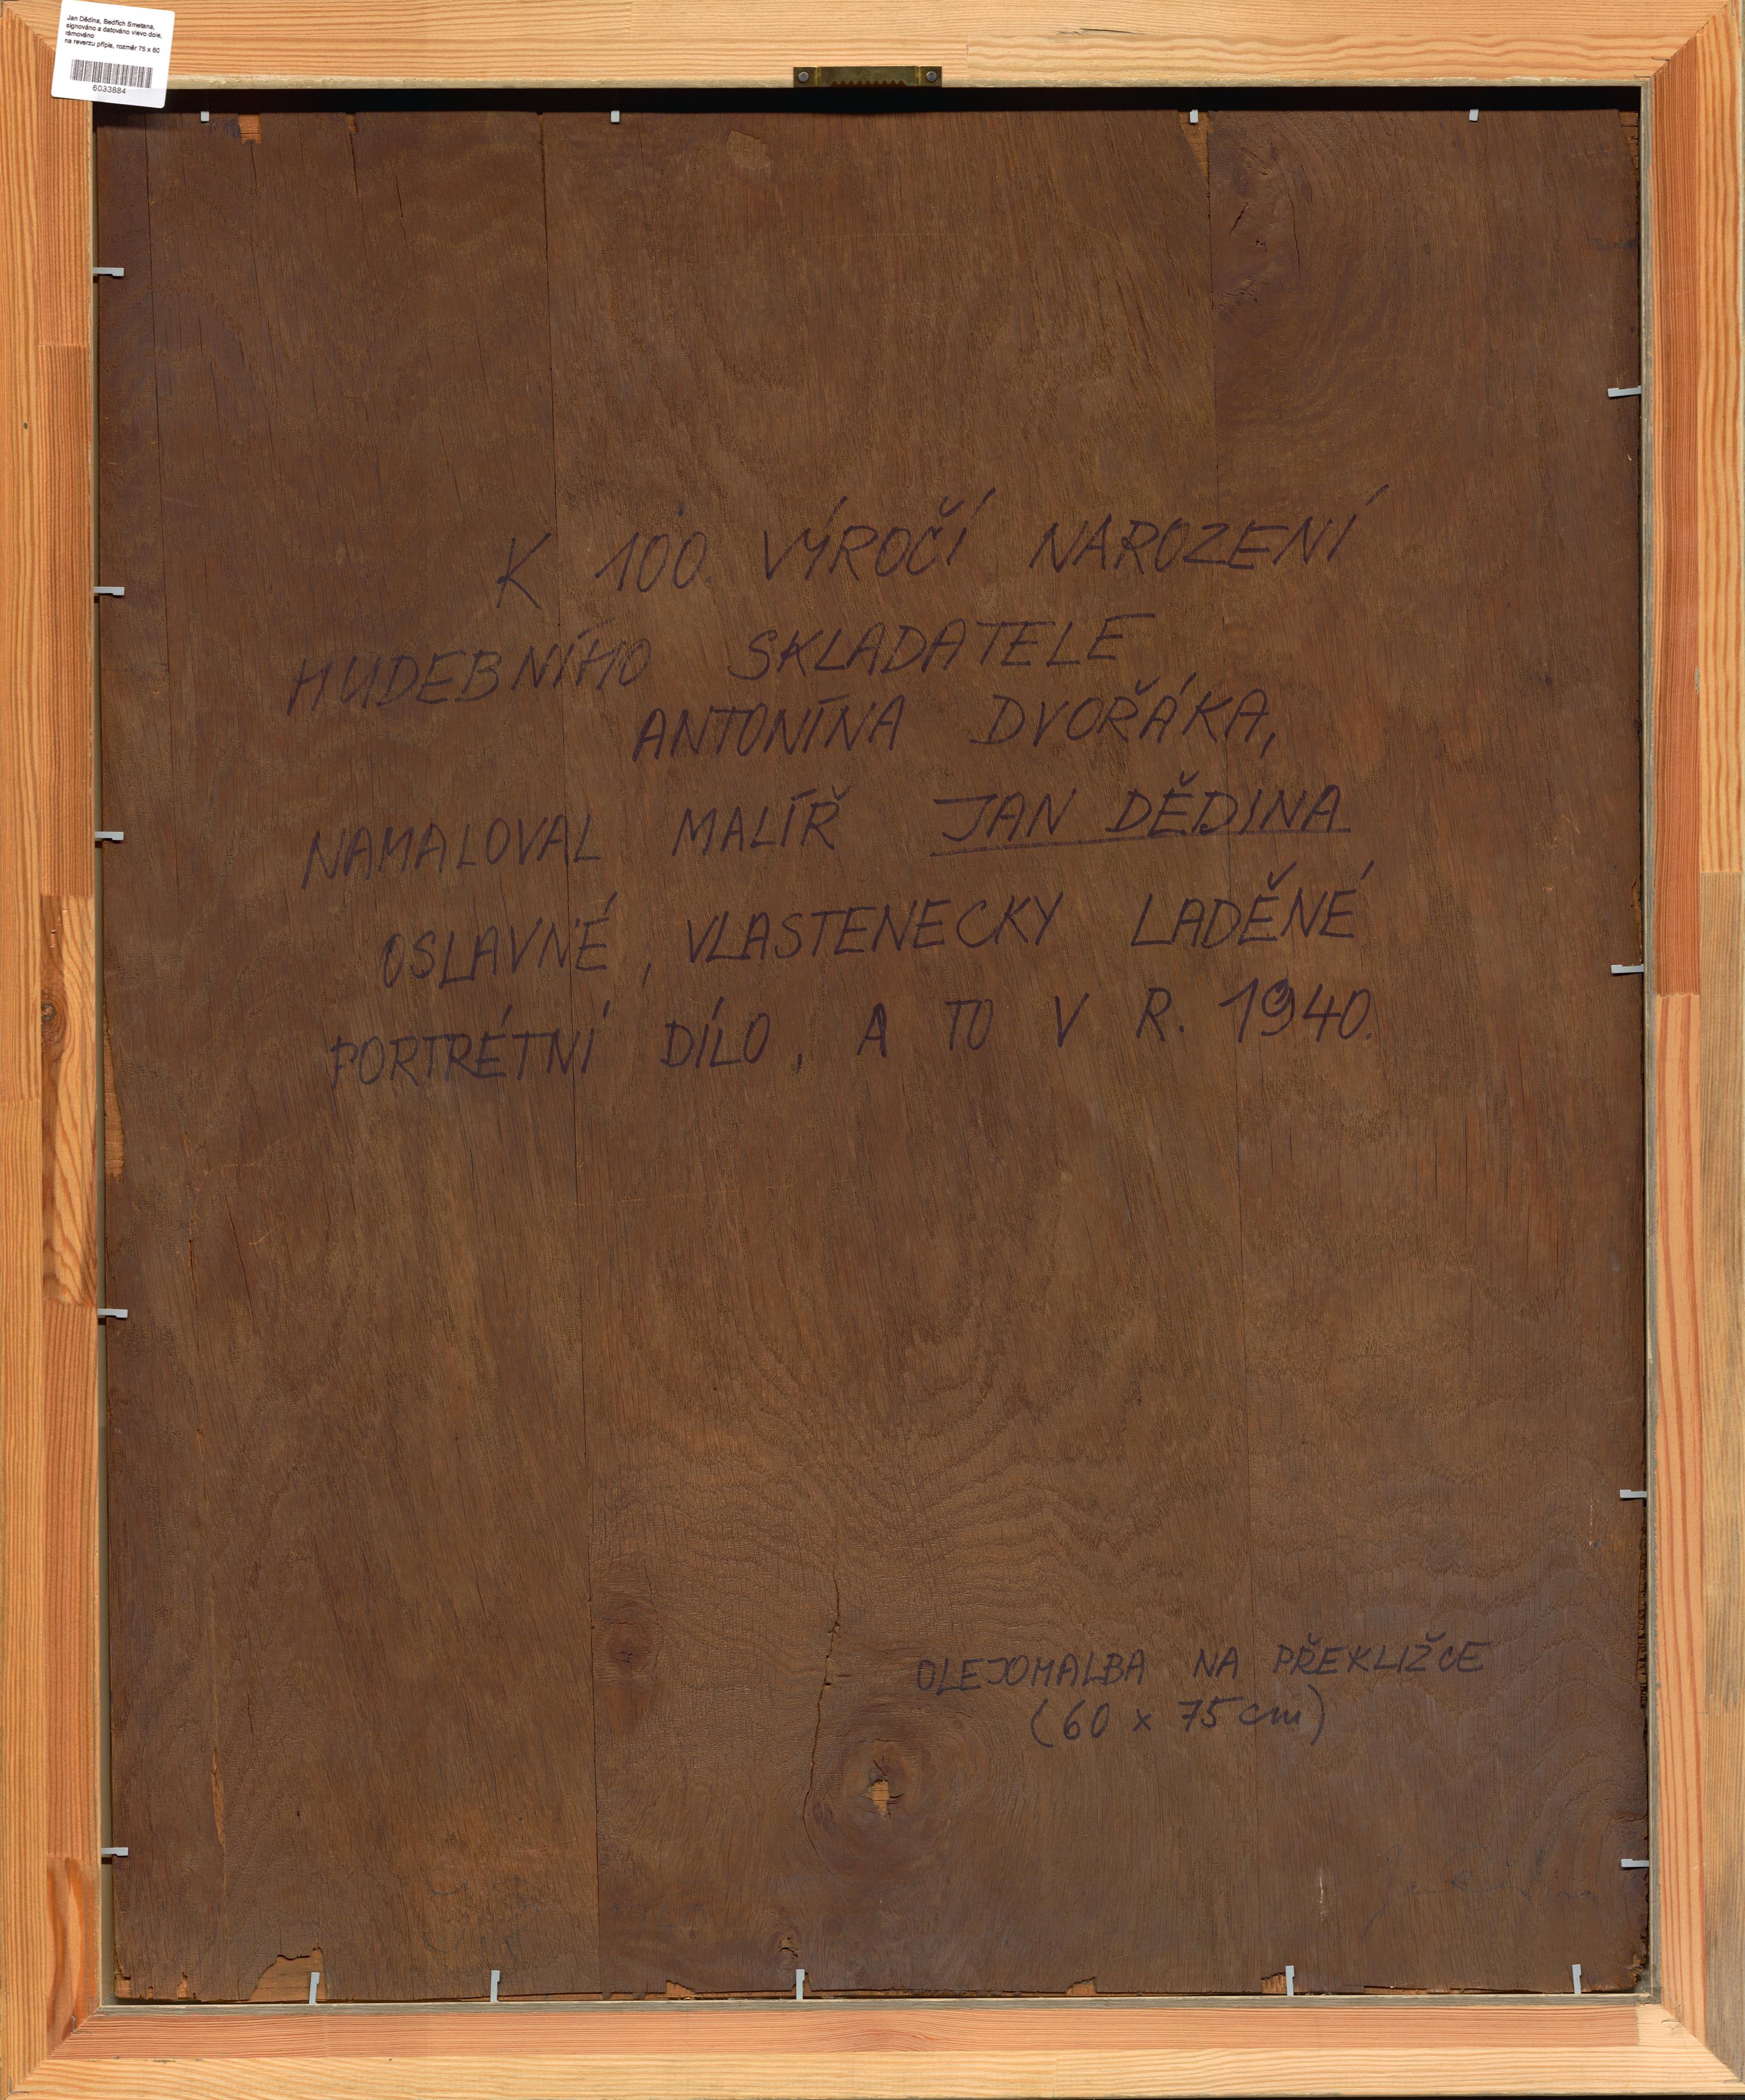 Jan Dědina, Bedřich Smetana,
signováno a datováno vlevo dole,
rámováno
na reverzu přípis, rozměr 75 x 60
6033884
K 100. VÝROČÍ NAROZENÍ
HUDEBNÍHO SKLADATELE
ANTONÍNA DVOŘÁKA,
NAMALOVAL MALÍŘ JAN DĚDINA
OSLAVNÉ, VLASTENECKY LADĚNÉ
PORTRÉTNÍ DÍLO, A TO V R. 1940.
OLEJOMALBA NA PŘEKLIŽCE
(60 x 75 cm)